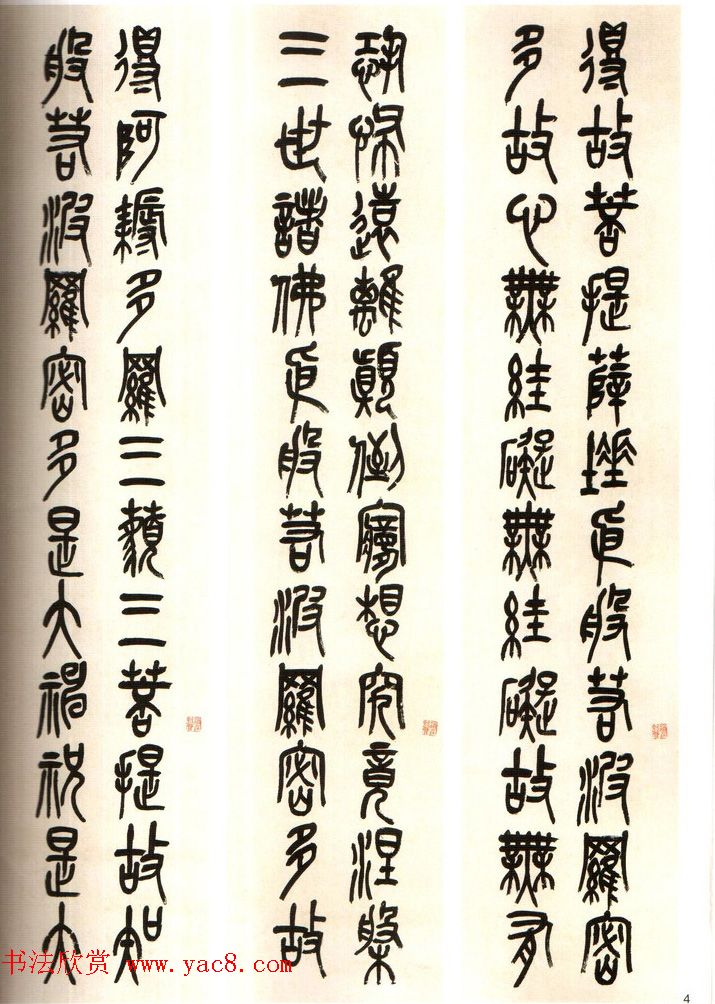 得故菩提薩埵依般若波羅密
多故心無絓礙無絓礙故無有
恐怖遠離顛倒夢想究竟涅槃
三世諸佛依般若波羅密多故
得阿耨多羅三藐三菩提故知
般若波羅密多是大神祝是大
书法欣赏 www.yac8.com
4